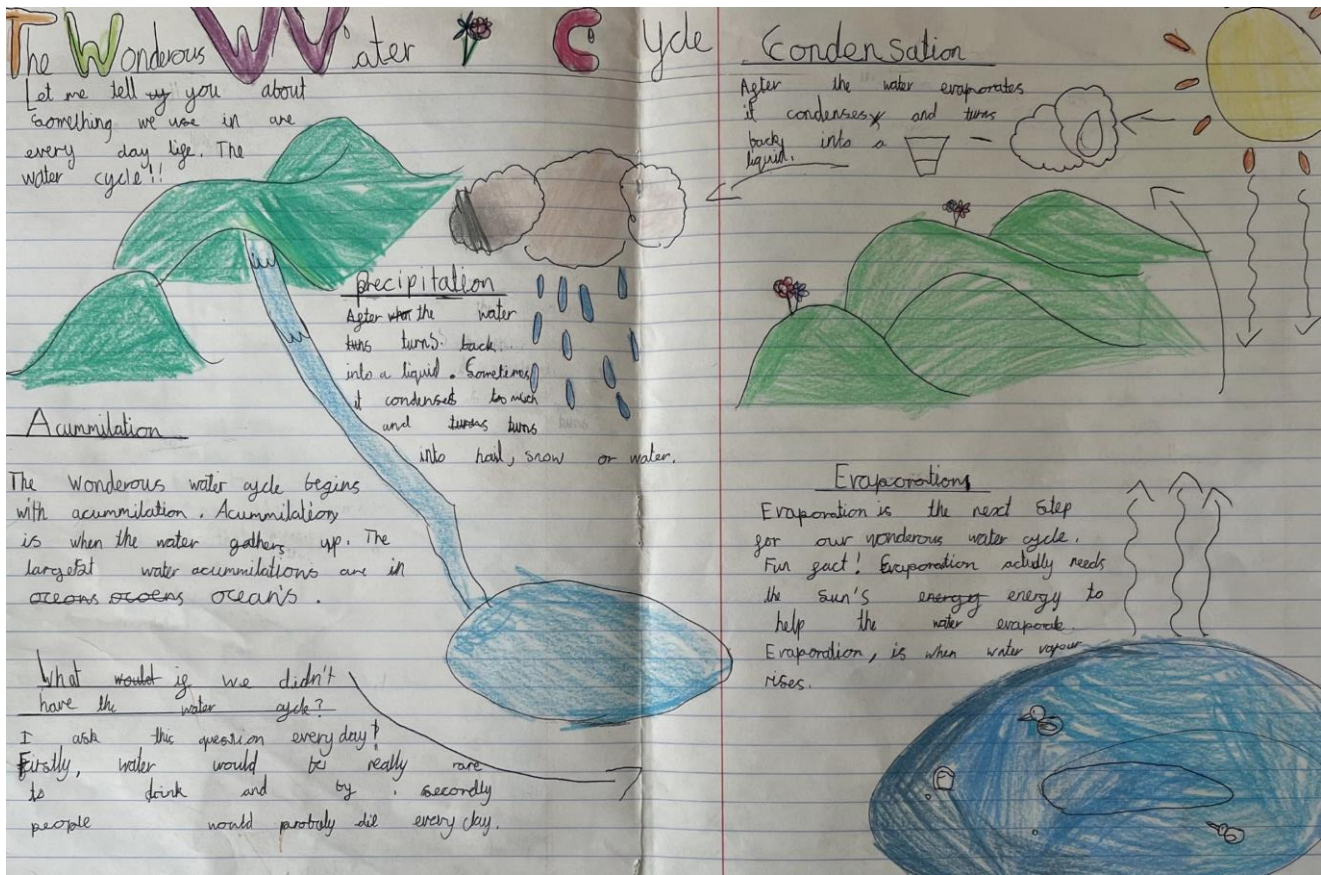 The Wonderous Water Cycle
Let me tell you about
Something we use in are
every day life. The
water cycle!!
precipitation
After the water
turns back
into a liquid. Sometimes
it condenses too much
and turns
into hail, snow or water.
Acummilation
The Wonderous water cycle begins
with acummilation. Acummilation
is when the water gathers up. The
largest water acummilations are in
oceans.
What if we didn't
have the water cycle?
I ask this question every day!
Firstly, water would be really rare
to drink and by. secondly
people would probaly die every day.
Condensation
After the water evaporates
it condenses and turns
back into a
liquid.
Evaporation
Evaporation is the next step
for our wonderous water cycle.
Fun fact! Evaporation actully needs
the sun's energy to
help the water evaporate.
Evaporation, is when water vapour
rises.